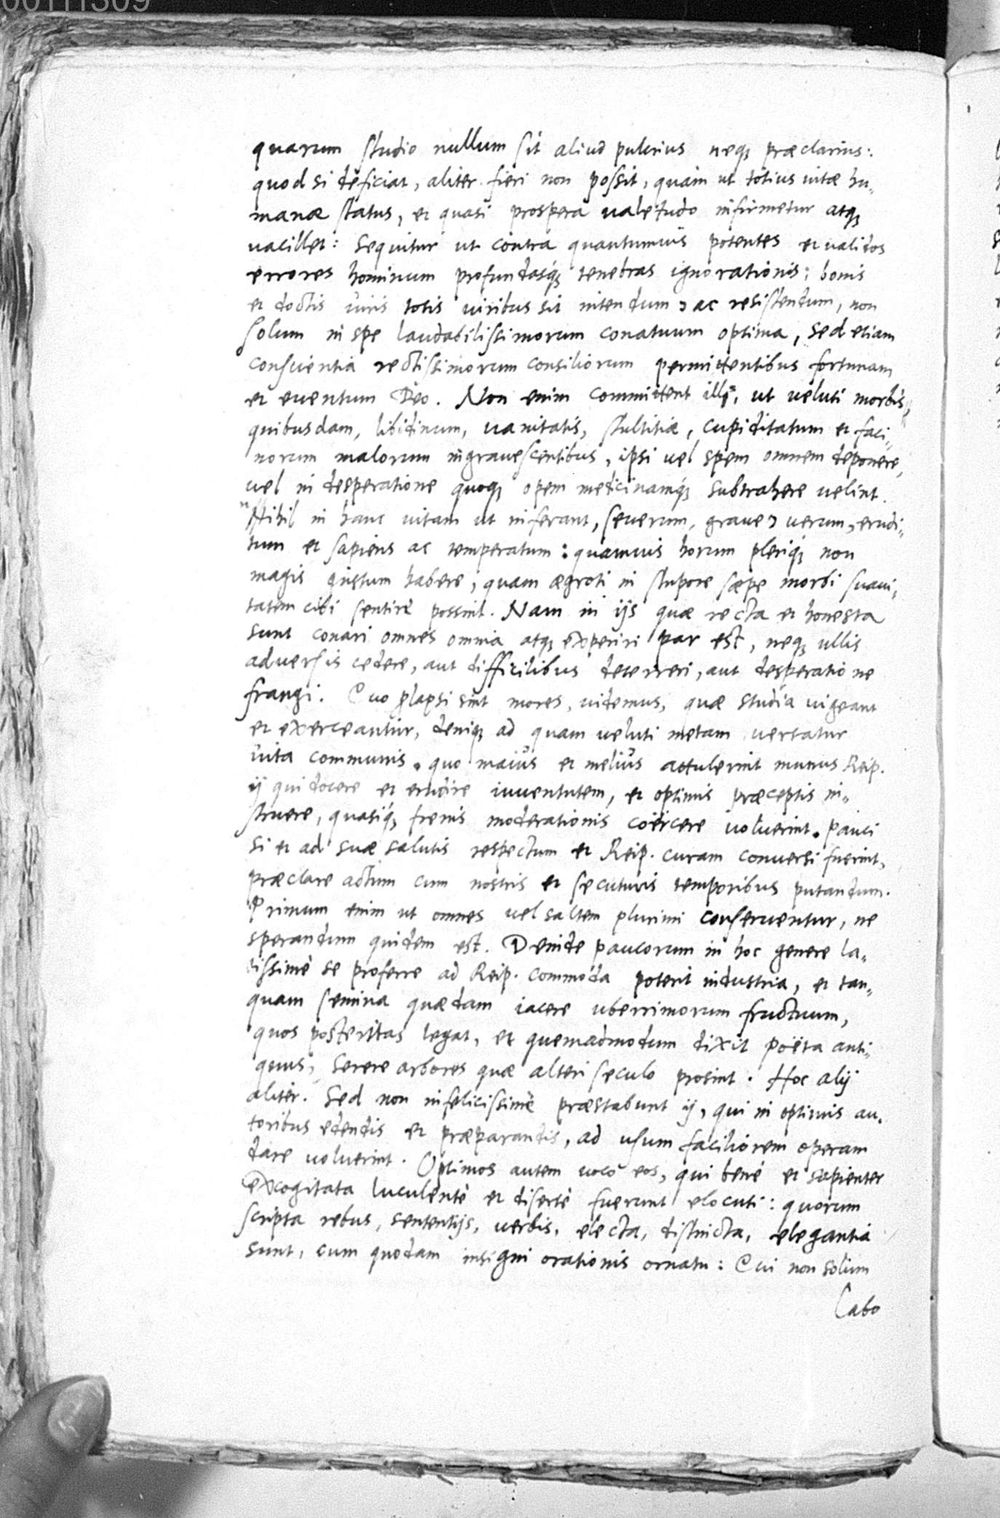 00111309
quarum studio nullum sit aliud pulcrius neq; præclarius:
quod si deficiat, aliter fieri non possit, quàm ut totius uitæ hu-
manæ status, et quasi prospera ualetudo infirmetur atq;
uacillet: Sequitur ut contra quantumuis potentes et ualidos
errores hominum profundasq; tenebras ignorationis: bonis
et doctis uiris totis uiribus sit nitendum, ac resistendum, non
solum in spe laudabilissimorum conatuum optima, sed etiam
conscientia rectissimorum consiliorum permittentibus fortunam
et euentum Deo. Non enim committent illi, ut ueluti morbis
quibusdam, libidinum, uanitatis, stultitiæ, cupiditatum et faci-
norum malorum ingrauescentibus, ipsi uel spem omnem deponere,
uel in desperatione quoq; opem medicinamq; subtrahere uelint.
Nihil in hanc uitam ut inferant, seuerum, graue, uerum, erudi-
tum et sapiens ac temperatum: quamuis horum pleriq; non
magis gustum habere, quam ægroti in stupore sæpe morbi suaui-
tatem cibi sentire possint. Nam in ijs quæ recta et honesta
sunt conari omnes omnia atq; experiri par est, neq; ullis
aduersis cedere, aut difficilibus deterreri, aut desperatione
frangi. Quo plapsi sint mores, uidemus, quæ studia uigeant
et exerceantur, deniq; ad quam ueluti metam uersatur
uita communis. quo maius et melius attulerint munus Reip.
ij qui docere et erudire iuuentutem, et optimis præceptis in-
struere, quasiq; frenis moderationis coërcere uoluerint. Pauci
si et ad suæ salutis respectum et Reip. curam conuersi fuerint,
præclare actum cum nostris et secuturis temporibus putandum.
Primum enim ut omnes uel saltem plurimi conseruentur, ne
sperandum quidem est. Deinde paucorum in hoc genere la-
tissimè se proferre ad Reip. commoda poterit industria, et tan-
quam semina quædam iacere uberrimorum fructuum,
quos posteritas legat, et quemadmodum dixit Poëta anti-
quus, Serere arbores quæ alteri seculo prosint. Hoc alij
aliter. Sed non infelicissimè præstabunt ij, qui in optimis au-
toribus edendis et præparandis, ad usum faciliorem operam
dare uoluerint. Optimos autem uoco eos, qui benè et sapienter
excogitata luculentè et disertè fuerunt elocuti: quorum
scripta rebus, sententijs, uerbis, electa, distincta, elegantia
sunt, cum quodam insigni orationis ornatu: Cui non solùm
labo